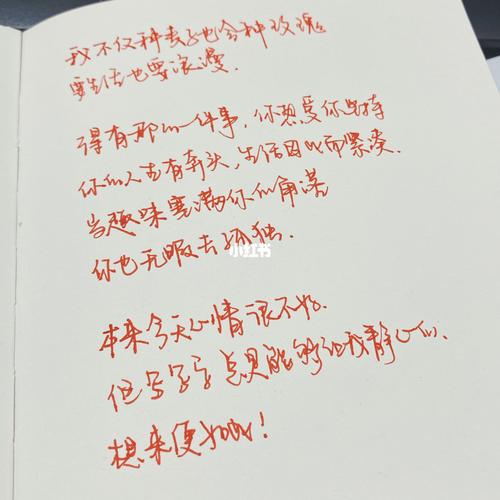 我不仅种麦子也会种玫瑰
要生活也要浪漫.
得有那么一件事，你热爱你坚持
你的人生有奔头，生活因此而紧凑.
当趣味塞满你的角落
你也无暇去孤独.
小红书
本来今天心情很不好.
但写写字总是能够让我静心的、
想来便如此！